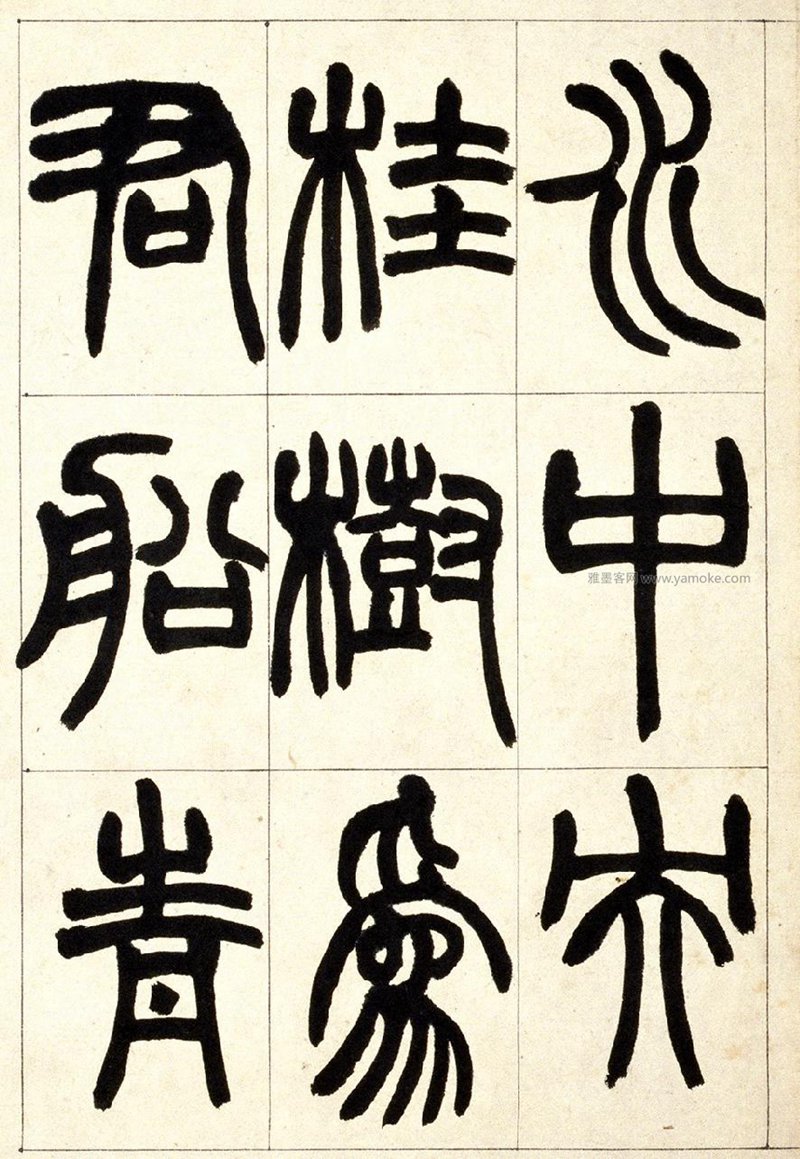 水中央
桂樹爲
君船青
雅墨客网 www.yamoke.com